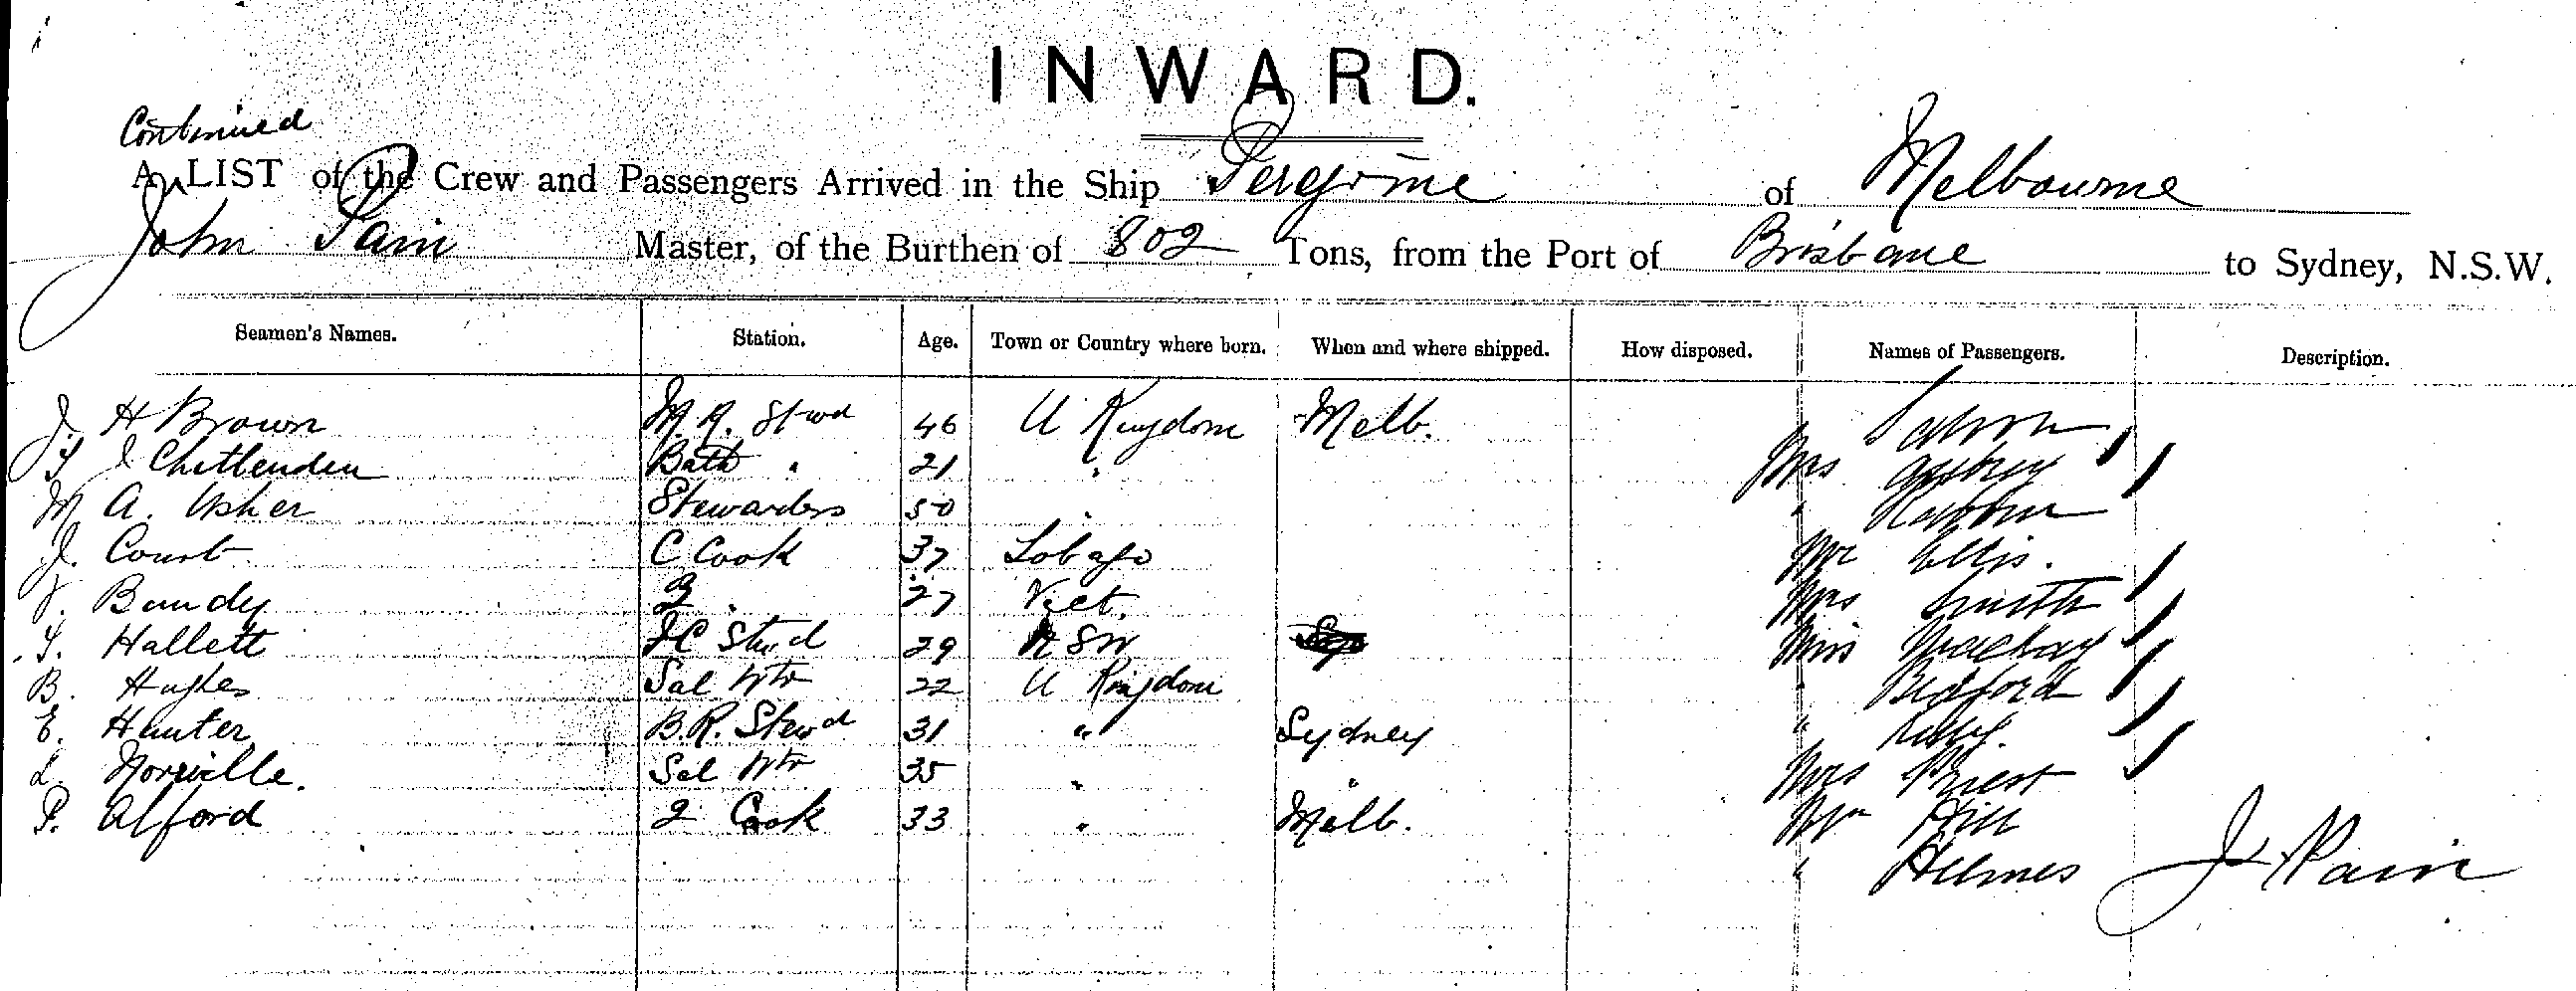 INWARD.
Continued
A LIST of the Crew and Passengers Arrived in the Ship Peregrine of Melbourne
John Pain Master, of the Burthen of 802 Tons, from the Port of Brisbane to Sydney, N.S.W.
Seamen's Names. Station. Age. Town or Country where born. When and where shipped. How disposed. Names of Passengers. Description.
J. H Brown M.R. Stwd 46 U Kingdom Melb. Saloon
J Chittenden Bath " 21 " Mrs
M A. Usher Stewardess 50 "
J. Court C Cook 37 Tobago Mr Ellis.
J. Bundy 2 " 27 Vict. Mrs Smith
T. Hallett FC Stwd 29 N S W Miss Mackay
B. Hughes Sal Wtr 22 U Kingdom " Bedford
E. Hunter B.R. Stewd 31 " Sydney "
L. Norville. Sal Wtr 35 " " Mrs Priest
P. Alford 2 Cook 33 " Melb. Mr Hill
" Helmes J Pain